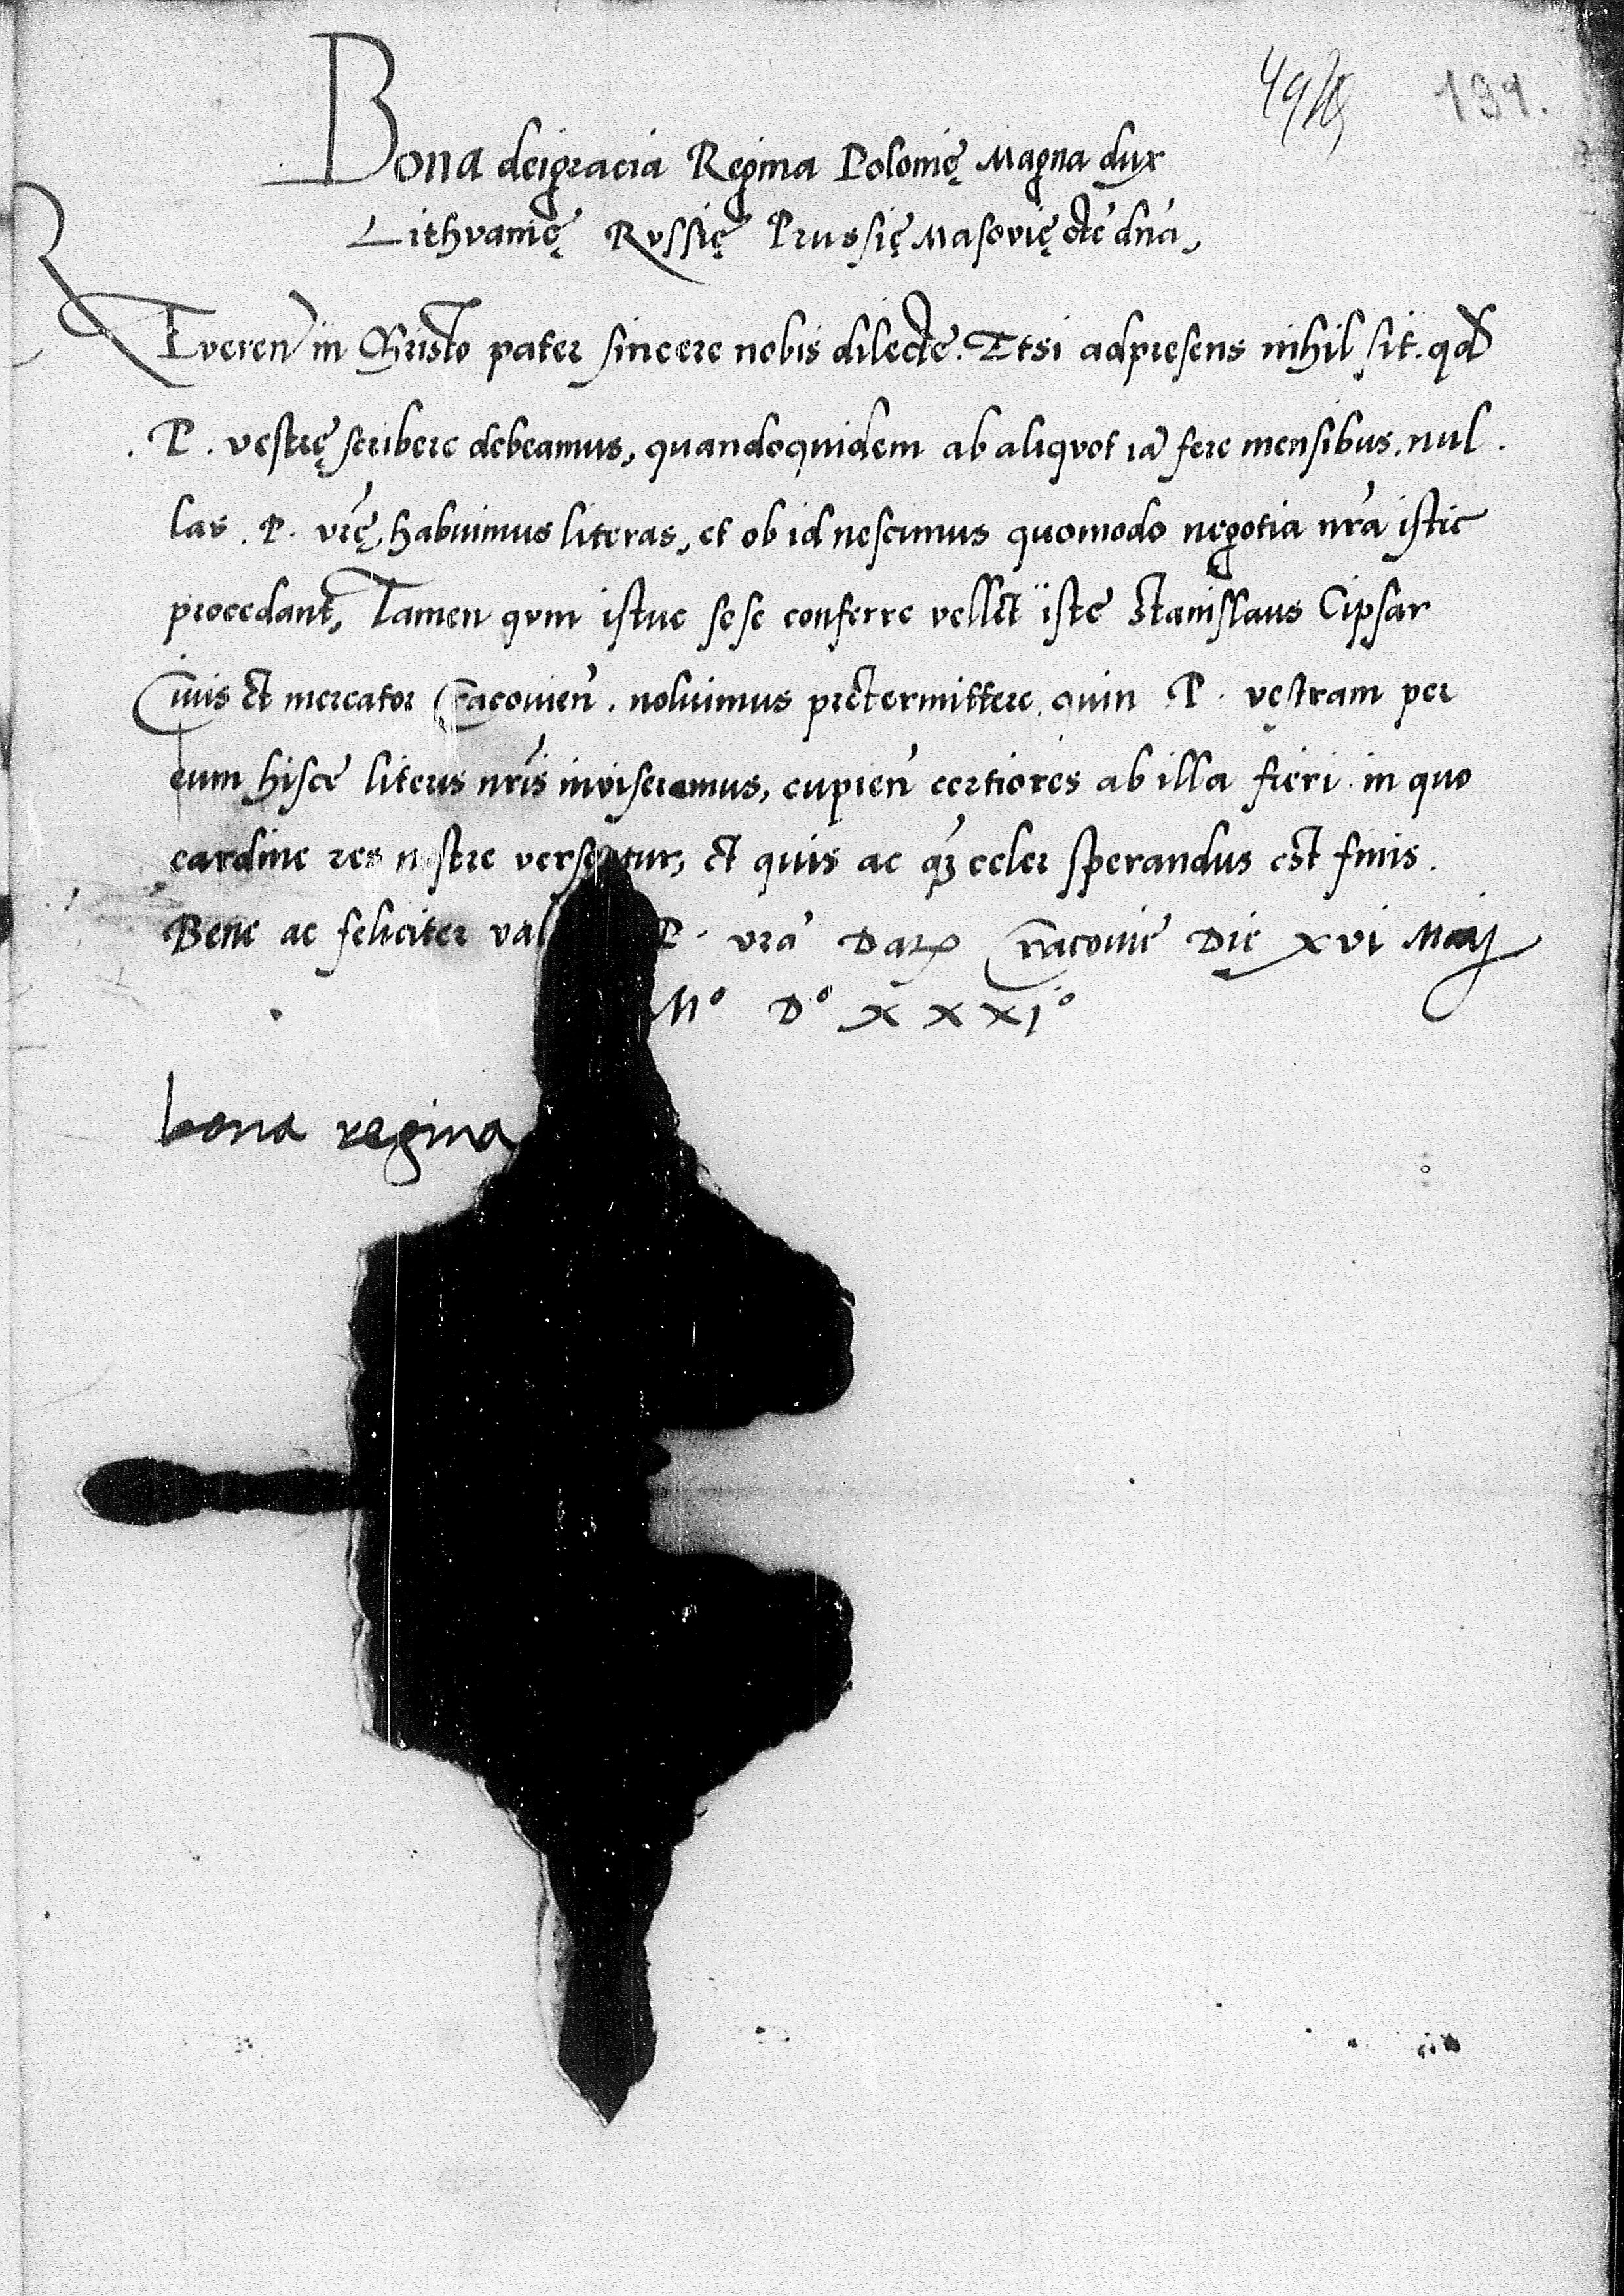 191.
Bona dei gracia Regina Polonię Magna dux
Lithvanię Rvssię Prussię Masovię etc dna,
REveren in Christo pater sincere nobis dilecte. Etsi adpresens nihil sit. qd
. P. vestrę scribere debeamus, quandoquidem ab aliqvot ia fere mensibus. nul.
las. P. vrę, habuimus literas, et ob id nescimus quomodo negotia nra istic
procedant, Tamen qvm istuc sese conferre vellet iste Stanislaus Cipsar
Civis et mercator Cracovien. noluimus pretermittere. quin P. vestram per
eum hisce literis nris inviseremus, cupien certiores ab illa fieri. in quo
cardine res nostre versentur, et quis ac q celer sperandus est finis.
Bene ac feliciter val P. vra Dat Cracovie Die xvi Maij
Mo Do xxxio
bona regina